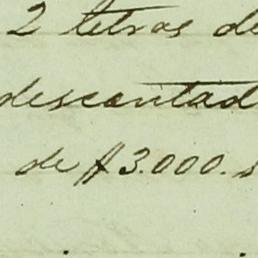 2 letras de
descontad
de $3.000.